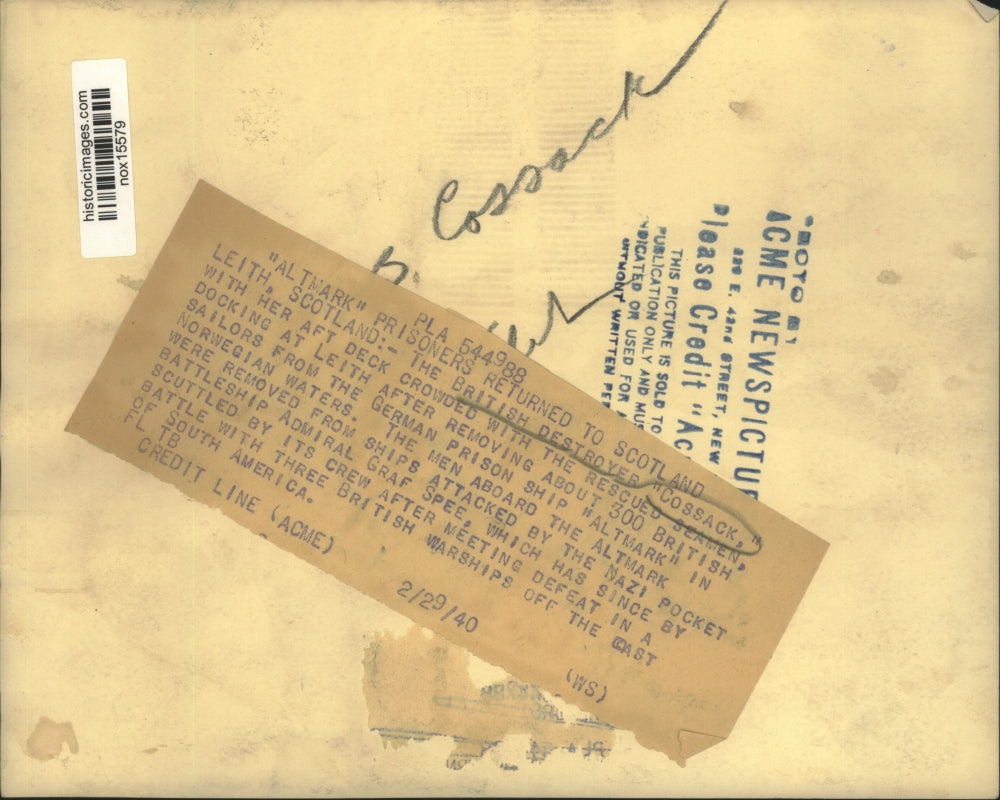 historicimages.com
nox15579
Cossack
PHOTO BY
ACME NEWSPICTUR
220 E. 42nd STREET, NEW
Please Credit "Ac
THIS PICTURE IS SOLD TO
PUBLICATION ONLY AND MUS
NDICATED OR USED FOR
WITHOUT WRITTEN PER
PLA 544988
"ALTMARK" PRISONERS RETURNED TO SCOTLAND
LEITH, SCOTLAND:- THE BRITISH DESTROYER "COSSACK,"
WITH HER AFT DECK CROWDED WITH THE RESCUED SEAMEN,
DOCKING AT LEITH AFTER REMOVING ABOUT 300 BRITISH
SAILORS FROM THE GERMAN PRISON SHIP "ALTMARK" IN
NORWEGIAN WATERS. THE MEN ABOARD THE ALTMARK
WERE REMOVED FROM SHIPS ATTACKED BY THE NAZI POCKET
BATTLESHIP ADMIRAL GRAF SPEE, WHICH HAS SINCE BY
SCUTTLED BY ITS CREW AFTER MEETING DEFEAT IN A
BATTLE WITH THREE BRITISH WARSHIPS OFF THE EAST
OF SOUTH AMERICA.
FL TB
CREDIT LINE (ACME) 2/29/40 (WS)